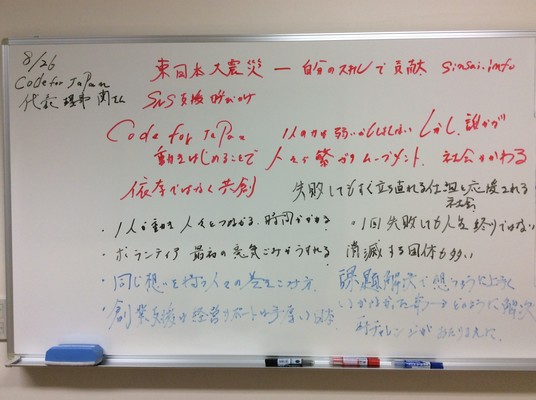 8/26
Code for Japan
代表理事 関さん
東日本大震災 ー 自分のスキルで貢献 sinsai.info
SNS 支援 呼びかけ
Code for Japan 1人の力は弱いかもしれない しかし、誰かが
動きはじめることで 人々が繋がりムーブメント、社会がかわる
依存ではなく共創
失敗してもすぐ立ち直れる仕組と応援される
社会
・1人が動き 人々とつながる、時間がかかる
・1回失敗しても人生終りではない
・ボランティア 最初の意気ごみがうすれる
消滅する団体も多い
・同じ想いを持つ人々の巻きこみ方
・創業支援や経営サポートが手厚い
課題解決で想うように
どのように解決
再チャレンジが